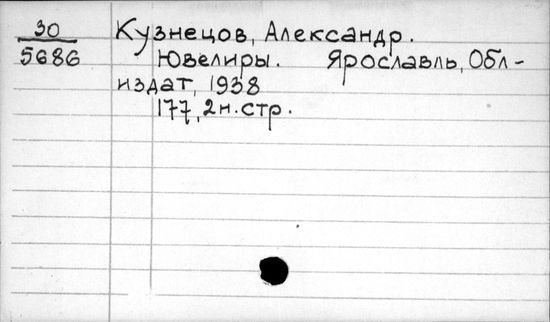 30
5686
Кузнецов, Александр.
Ювелиры. Ярославль, Обл-
издат, 1938
177, 2 н. стр.